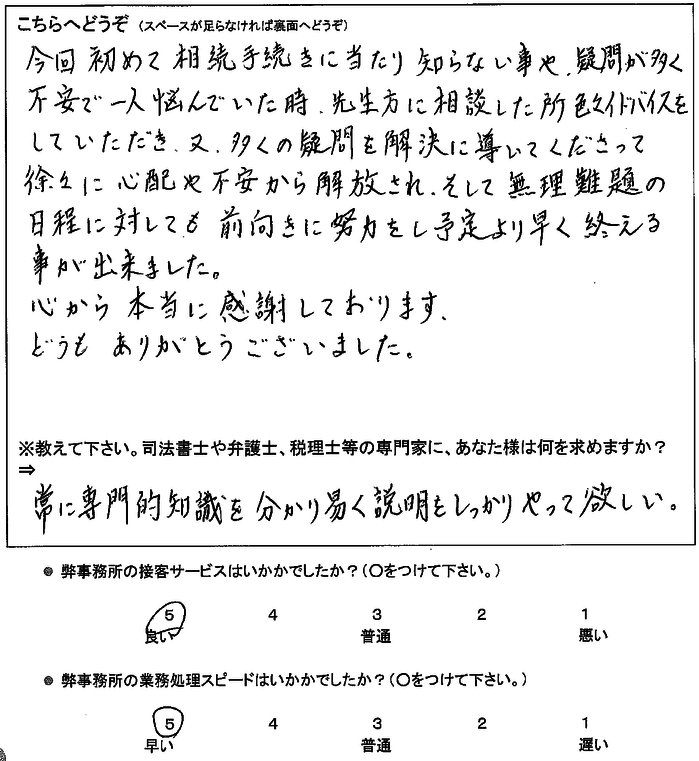 こちらへどうぞ（スペースが足らなければ裏面へどうぞ）
今回初めて相続手続きに当たり知らない事や、疑問が多く
不安で一人悩んでいた時、先生方に相談した所色々アドバイスを
していただき、又、多くの疑問を解決に導いてくださって
徐々に心配や不安から解放され、そして無理難題の
日程に対しても前向きに努力をし予定より早く終える
事が出来ました。
心から本当に感謝しております、
どうもありがとうございました。
※教えて下さい。司法書士や弁護士、税理士等の専門家に、あなた様は何を求めますか？
⇒
常に専門的知識を分かり易く説明をしっかりやって欲しい。
● 弊事務所の接客サービスはいかかでしたか？（〇をつけて下さい。）
5 4 3 2 1
良い 普通 悪い
● 弊事務所の業務処理スピードはいかかでしたか？（〇をつけて下さい。）
5 4 3 2 1
早い 普通 遅い